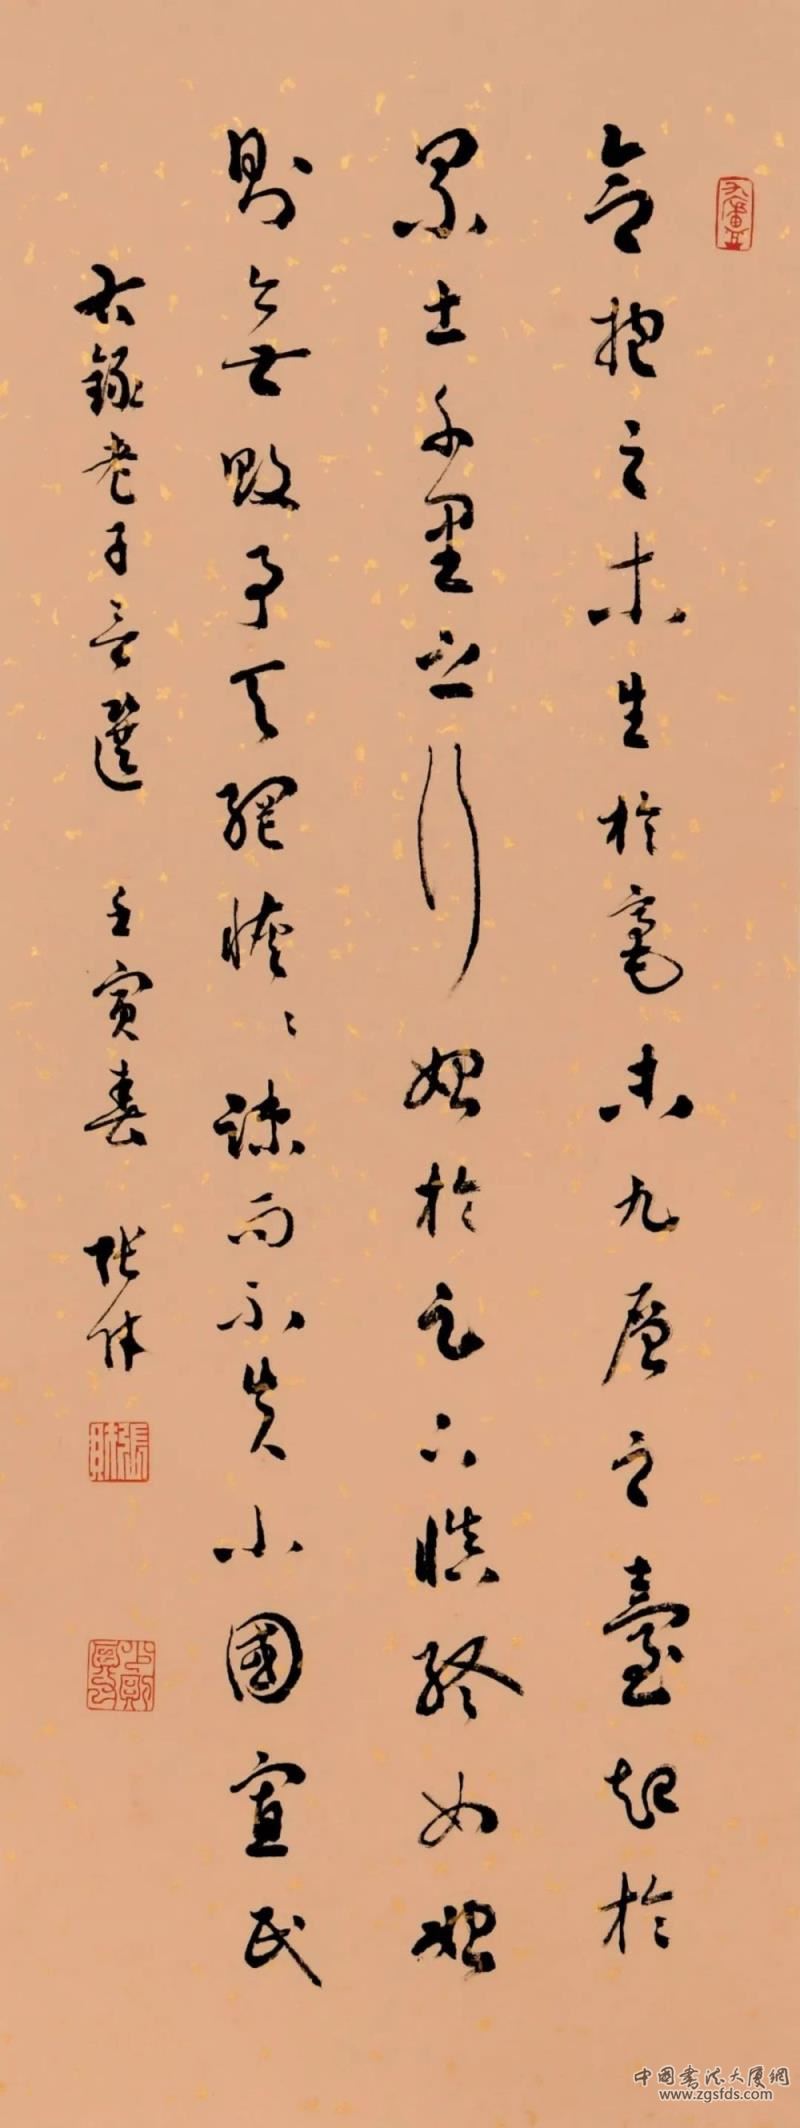 合抱之木生於毫末九層之臺起於
累土千里之行始於足下慎終如始
則無敗事天網恢〻踈而不失小國寡民
右錄老子言選 壬寅春 張
中國書法大廈網
www.zgsfds.com